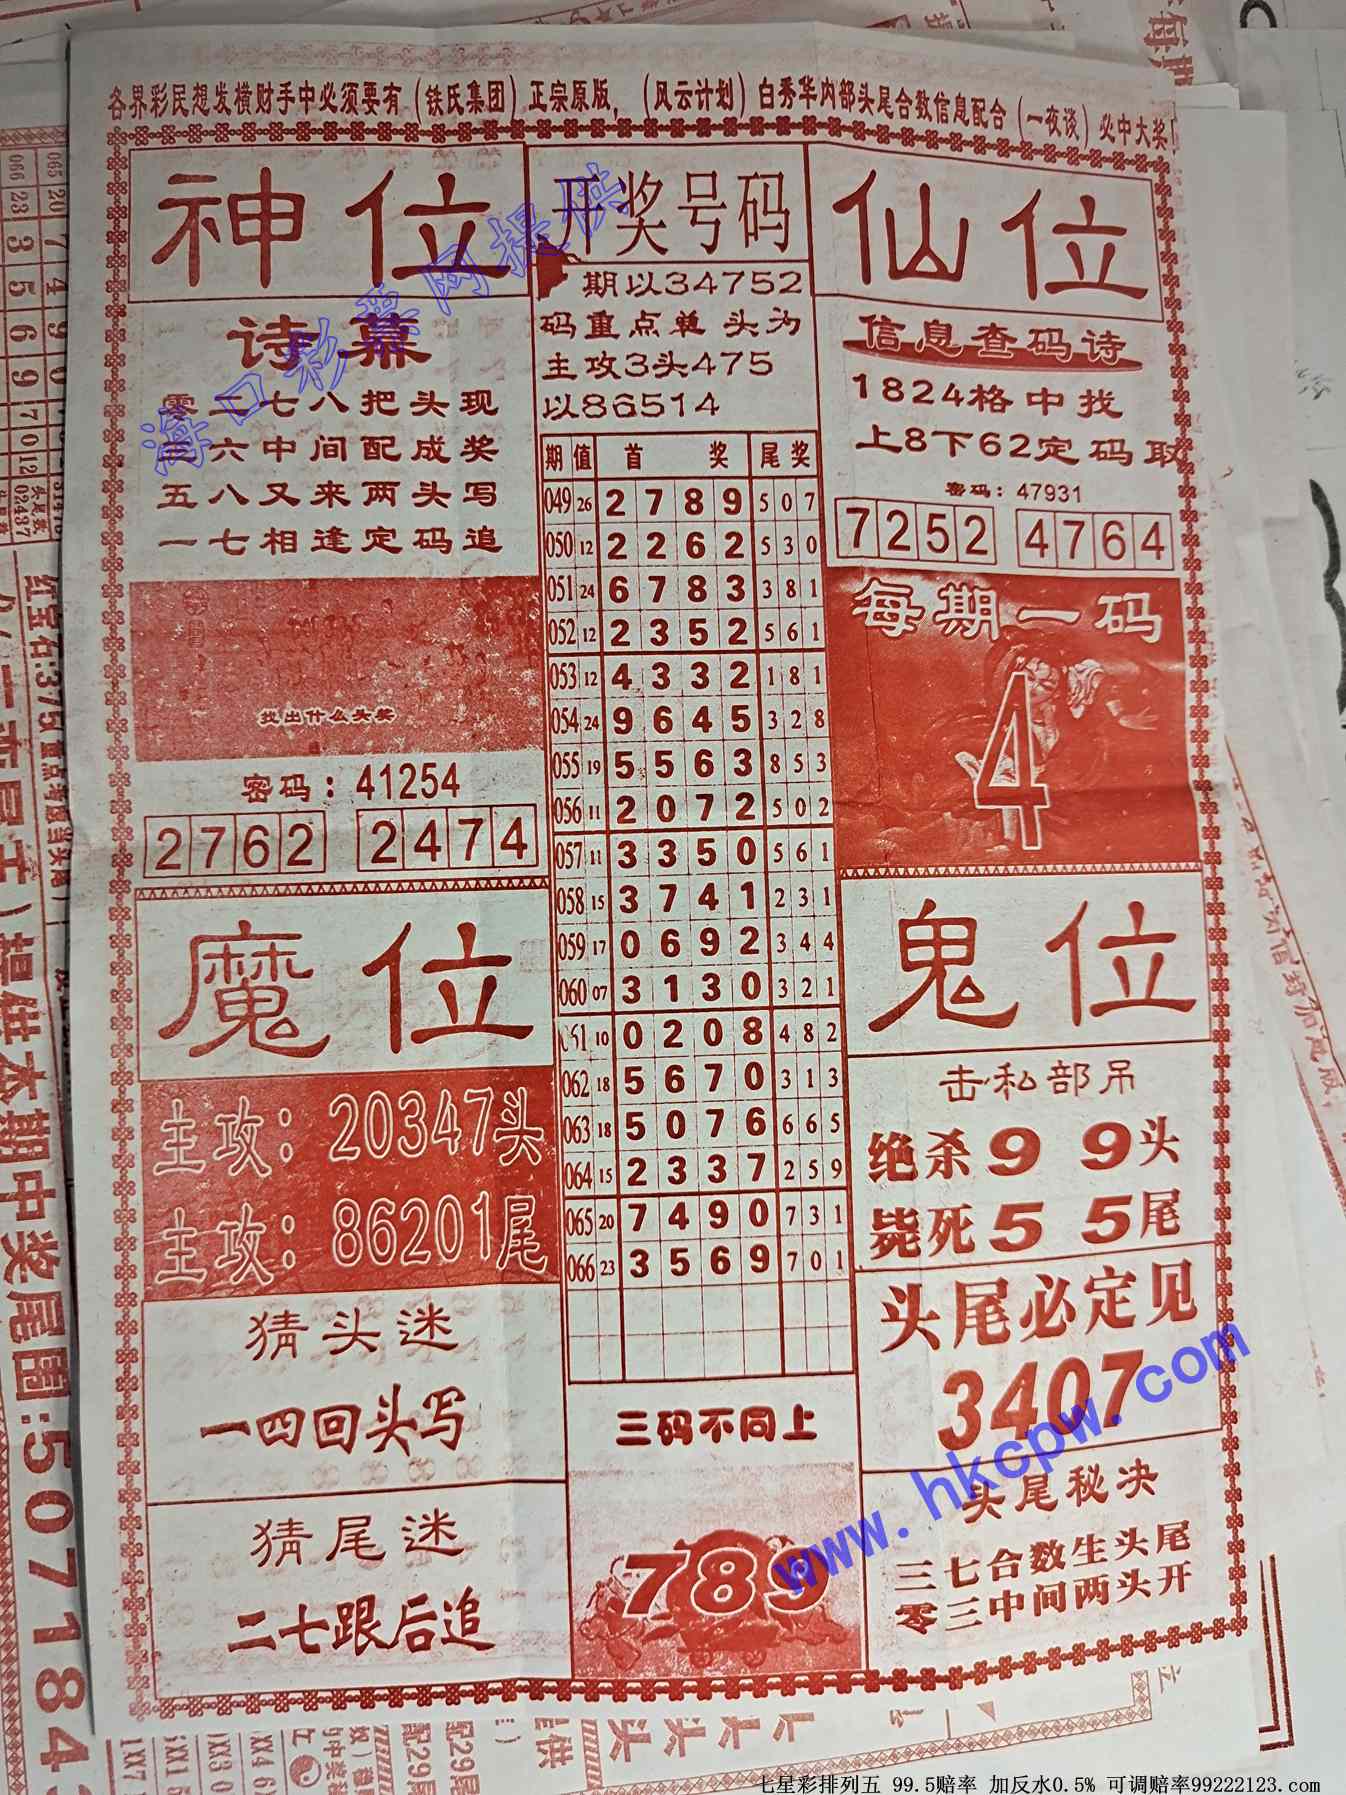 各界彩民想发横财手中必须要有（铁氏集团）正宗原版，（风云计划）白秀华内部头尾合数信息配合（一夜谈）必中大奖
神位
诗幕
零二七八把头现
六中间配成奖
五八又来两头写
一七相逢定码追
找出什么头奖
密码：41254
2762 2474
开奖号码
期以34752
码重点单 头为
主攻3头475
以86514
期 值 首 奖 尾 奖
049 26 2 7 8 9 5 0 7
050 12 2 2 6 2 5 3 0
051 24 6 7 8 3 3 8 1
052 12 2 3 5 2 5 6 1
053 12 4 3 3 2 1 8 1
054 24 9 6 4 5 3 2 8
055 19 5 5 6 3 8 5 3
056 11 2 0 7 2 5 0 2
057 11 3 3 5 0 5 6 1
058 15 3 7 4 1 2 3 1
059 17 0 6 9 2 3 4 4
060 07 3 1 3 0 3 2 1
061 10 0 2 0 8 4 8 2
062 18 5 6 7 0 3 1 3
063 18 5 0 7 6 6 6 5
064 15 2 3 3 7 2 5 9
065 20 7 4 9 0 7 3 1
066 23 3 5 6 9 7 0 1
三码不同上
789
仙位
信息查码诗
1824格中找
上8下62定码取
密码：47931
7252 4764
每期一码
4
魔位
主攻：20347头
主攻：86201尾
猜头迷
一四回头写
猜尾迷
二七跟后追
鬼位
击私部吊
绝杀9 9头
毙死5 5尾
头尾必定见
3407
头尾秘决
三七合数生头尾
零三中间两头开
海口彩票网提供
www.hkcpw.com
提供本期中奖尾围:507184
七星彩排列五 99.5赔率 加反水0.5% 可调赔率99222123.com